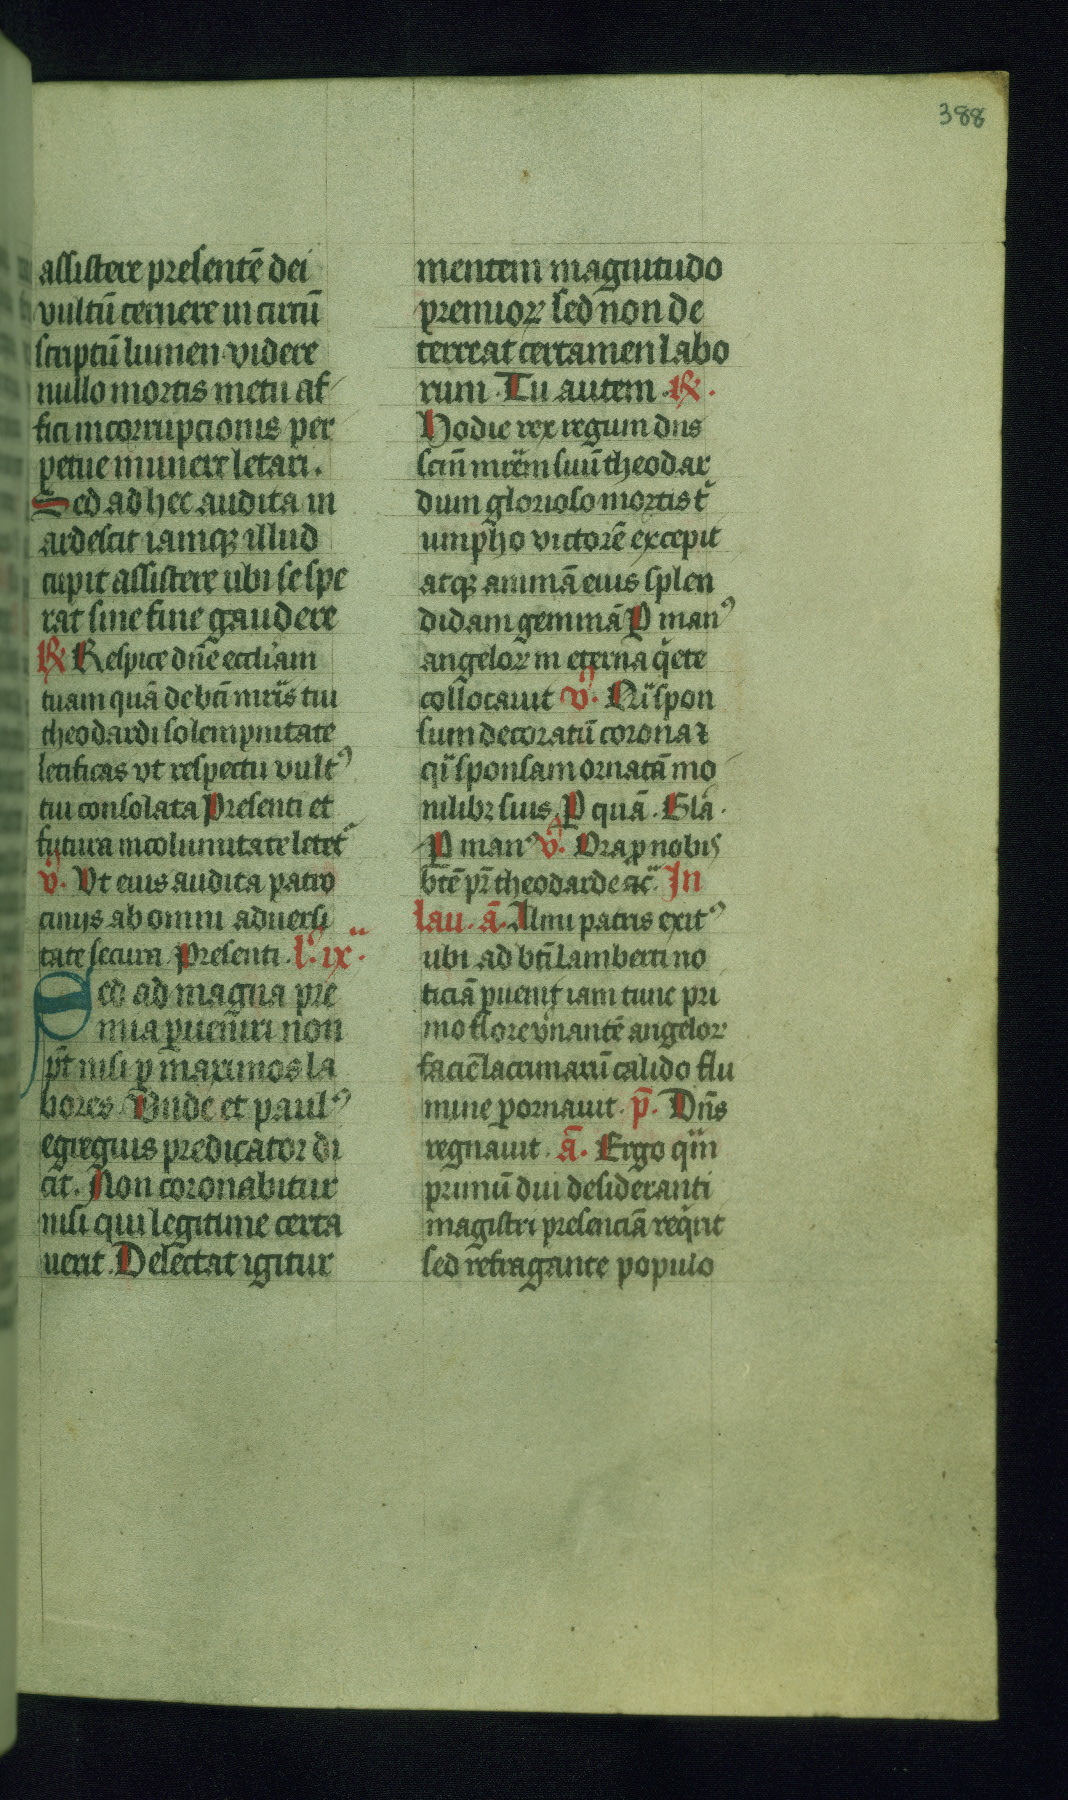 388
assistere presentē dei
vultū cernere incircū
scriptū lumen videre
nullo mortis metu af
fici incorrupcionis per
petue munere letari.
Sed ad hec audita in
ardescit iamqꝫ illud
cupit assistere ubi se spe
rat sine fine gaudere
℟ Respice dn̄e eccliam
tuam quā de bt̄i mr̄is tui
theodardi solempnitate
letificas vt respectu vultꝰ
tui consolata Presenti et
futura incolumitate letet᷑
v̊. Vt eius audita patro
cinijs ab omni aduersi
tate secura Presenti. lꝰ. ix᷒.
Sed ad magna pre
mia ꝑueniri non
pt̄ nisi ꝑ maximos la
bores. Vnde et paulꝰ
egregius predicator di
cit. Non coronabitur
nisi qui legitime certa
uerit. Delectat igitur
mentem magnitudo
premioꝝ sed non de
terreat certamen labo
rum Tu autem. ℟.
Hodie rex regum dn̄s
scm̄ mr̄em suū theodar
dum glorioso mortis t͛
umpho victorē excepit
atqꝫ animā eius splen
didam gemmā P manꝰ
angeloꝝ in eterna q̇ete
collocauit v̊. Qui spon
sum decoratū corona ⁊
qi sponsam ornatā mo
nilibꝫ suis. P quā. Gl̄a.
P manꝰ v̊. Ora ꝓ nobis
bt̄e pr̄ theodarde ⁊c̄. In
lau. ā. Almi patris exitꝰ
ubi ad bt̄i Lamberti no
ticiā ꝑuenit iam tunc pri
mo flore v̓nantē angelor᷑
faciē lacrimarū calido flu
mine ꝑornauit. p̄. Dn̄s
regnauit. ā. Ergo qm̄
primū dui desideranti
magistri presenciā reqͥrit
sed refragante populo